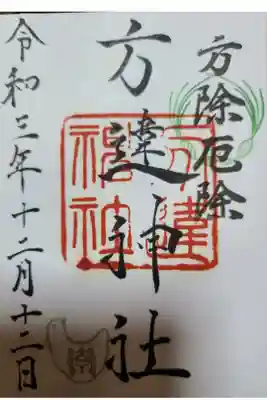 方除厄除
方違神社
方違
神社
令和三年十二月十二日